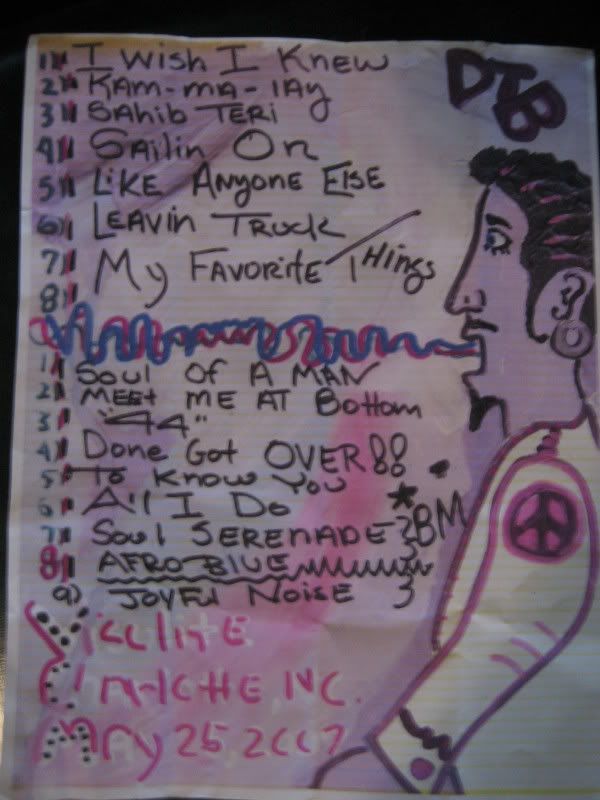 DTB
1) I Wish I Knew
2) Kam-ma-lay
3) Sahib Teri
4) Sailin On
5) Like Anyone Else
6) Leavin Truck
7) My Favorite Things
8)
1) Soul Of A Man
2) Meet me At Bottom
3) "44"
4) Done Got OVER!!
5) To Know You
6) All I Do
7) Soul Serenade } * BM
8) Afro Blue
9) Joyful Noise }
Visulite
Charlotte, NC.
May 25, 2007